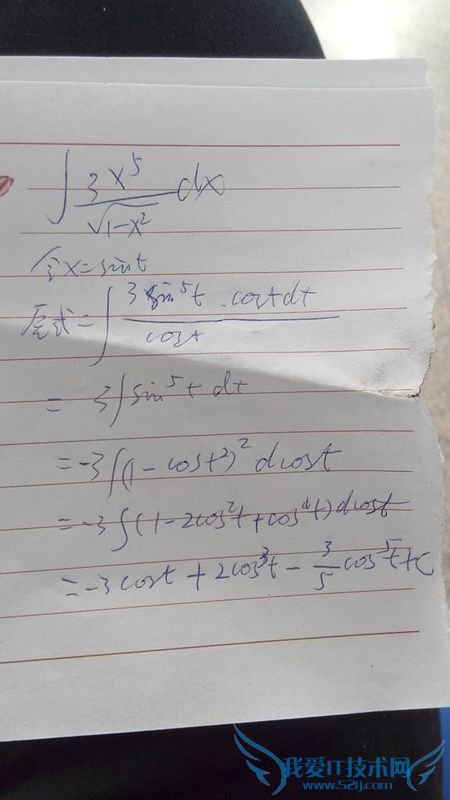 ∫ 3x⁵/√(1-x²) dx
令x=sint
原式=∫ 3sin⁵t·costdt/cost
= 3∫sin⁵t dt
=-3∫(1-cost²)² dcost
=-3∫(1-2cos²t+cos⁴t)dcost
=-3cost+2cos³t-3/5cos⁵t+C
我爱IT技术网
www.52ij.com